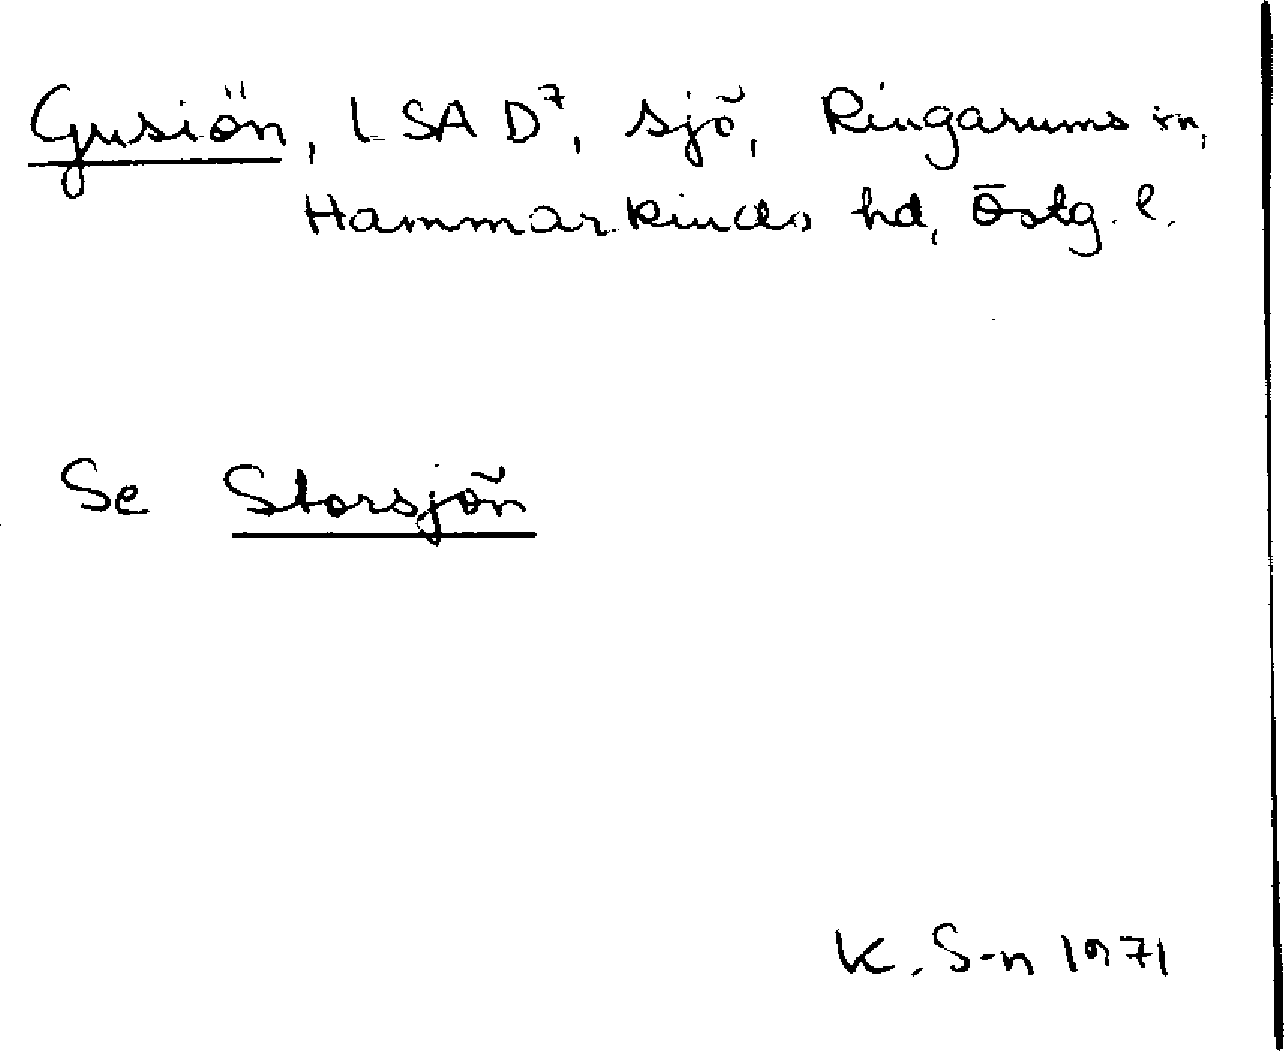 Gusiön, LSA D7, sjö, Ringarums sn,
Hammarkinds hd, Östg. l.
Se Storsjön
K. S-n 1971